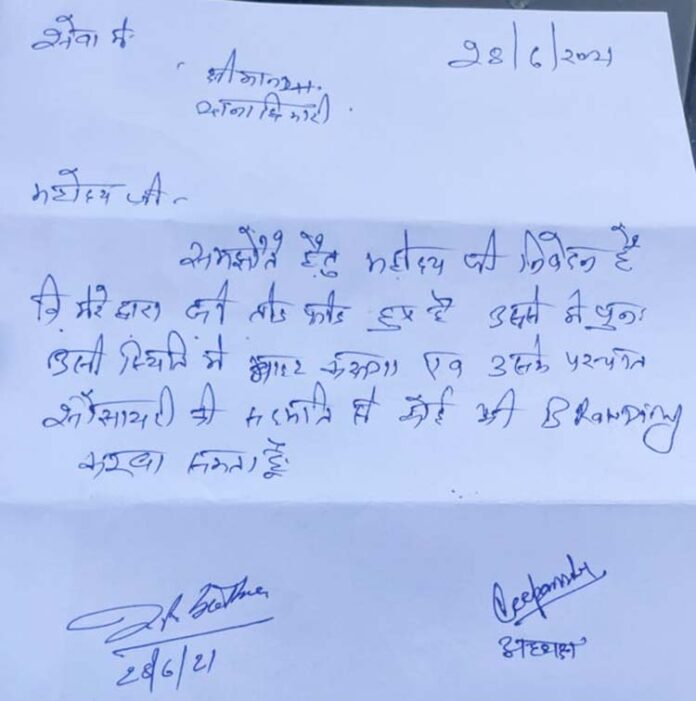 सेवा में
28/6/2021
श्रीमान
थानाधिकारी
महोदय जी -
समझौते हेतु महोदय जी निवेदन है
कि मेरे द्वारा जो तोड फोड हुई है उसमें में पुनः
उसी स्थिति में करूंगा एव उसके पश्चात
सौसायटी की सहमति से कोई भी BRanDing
करवा सकता हूँ
28/6/21
Deepanshu
अध्यक्ष